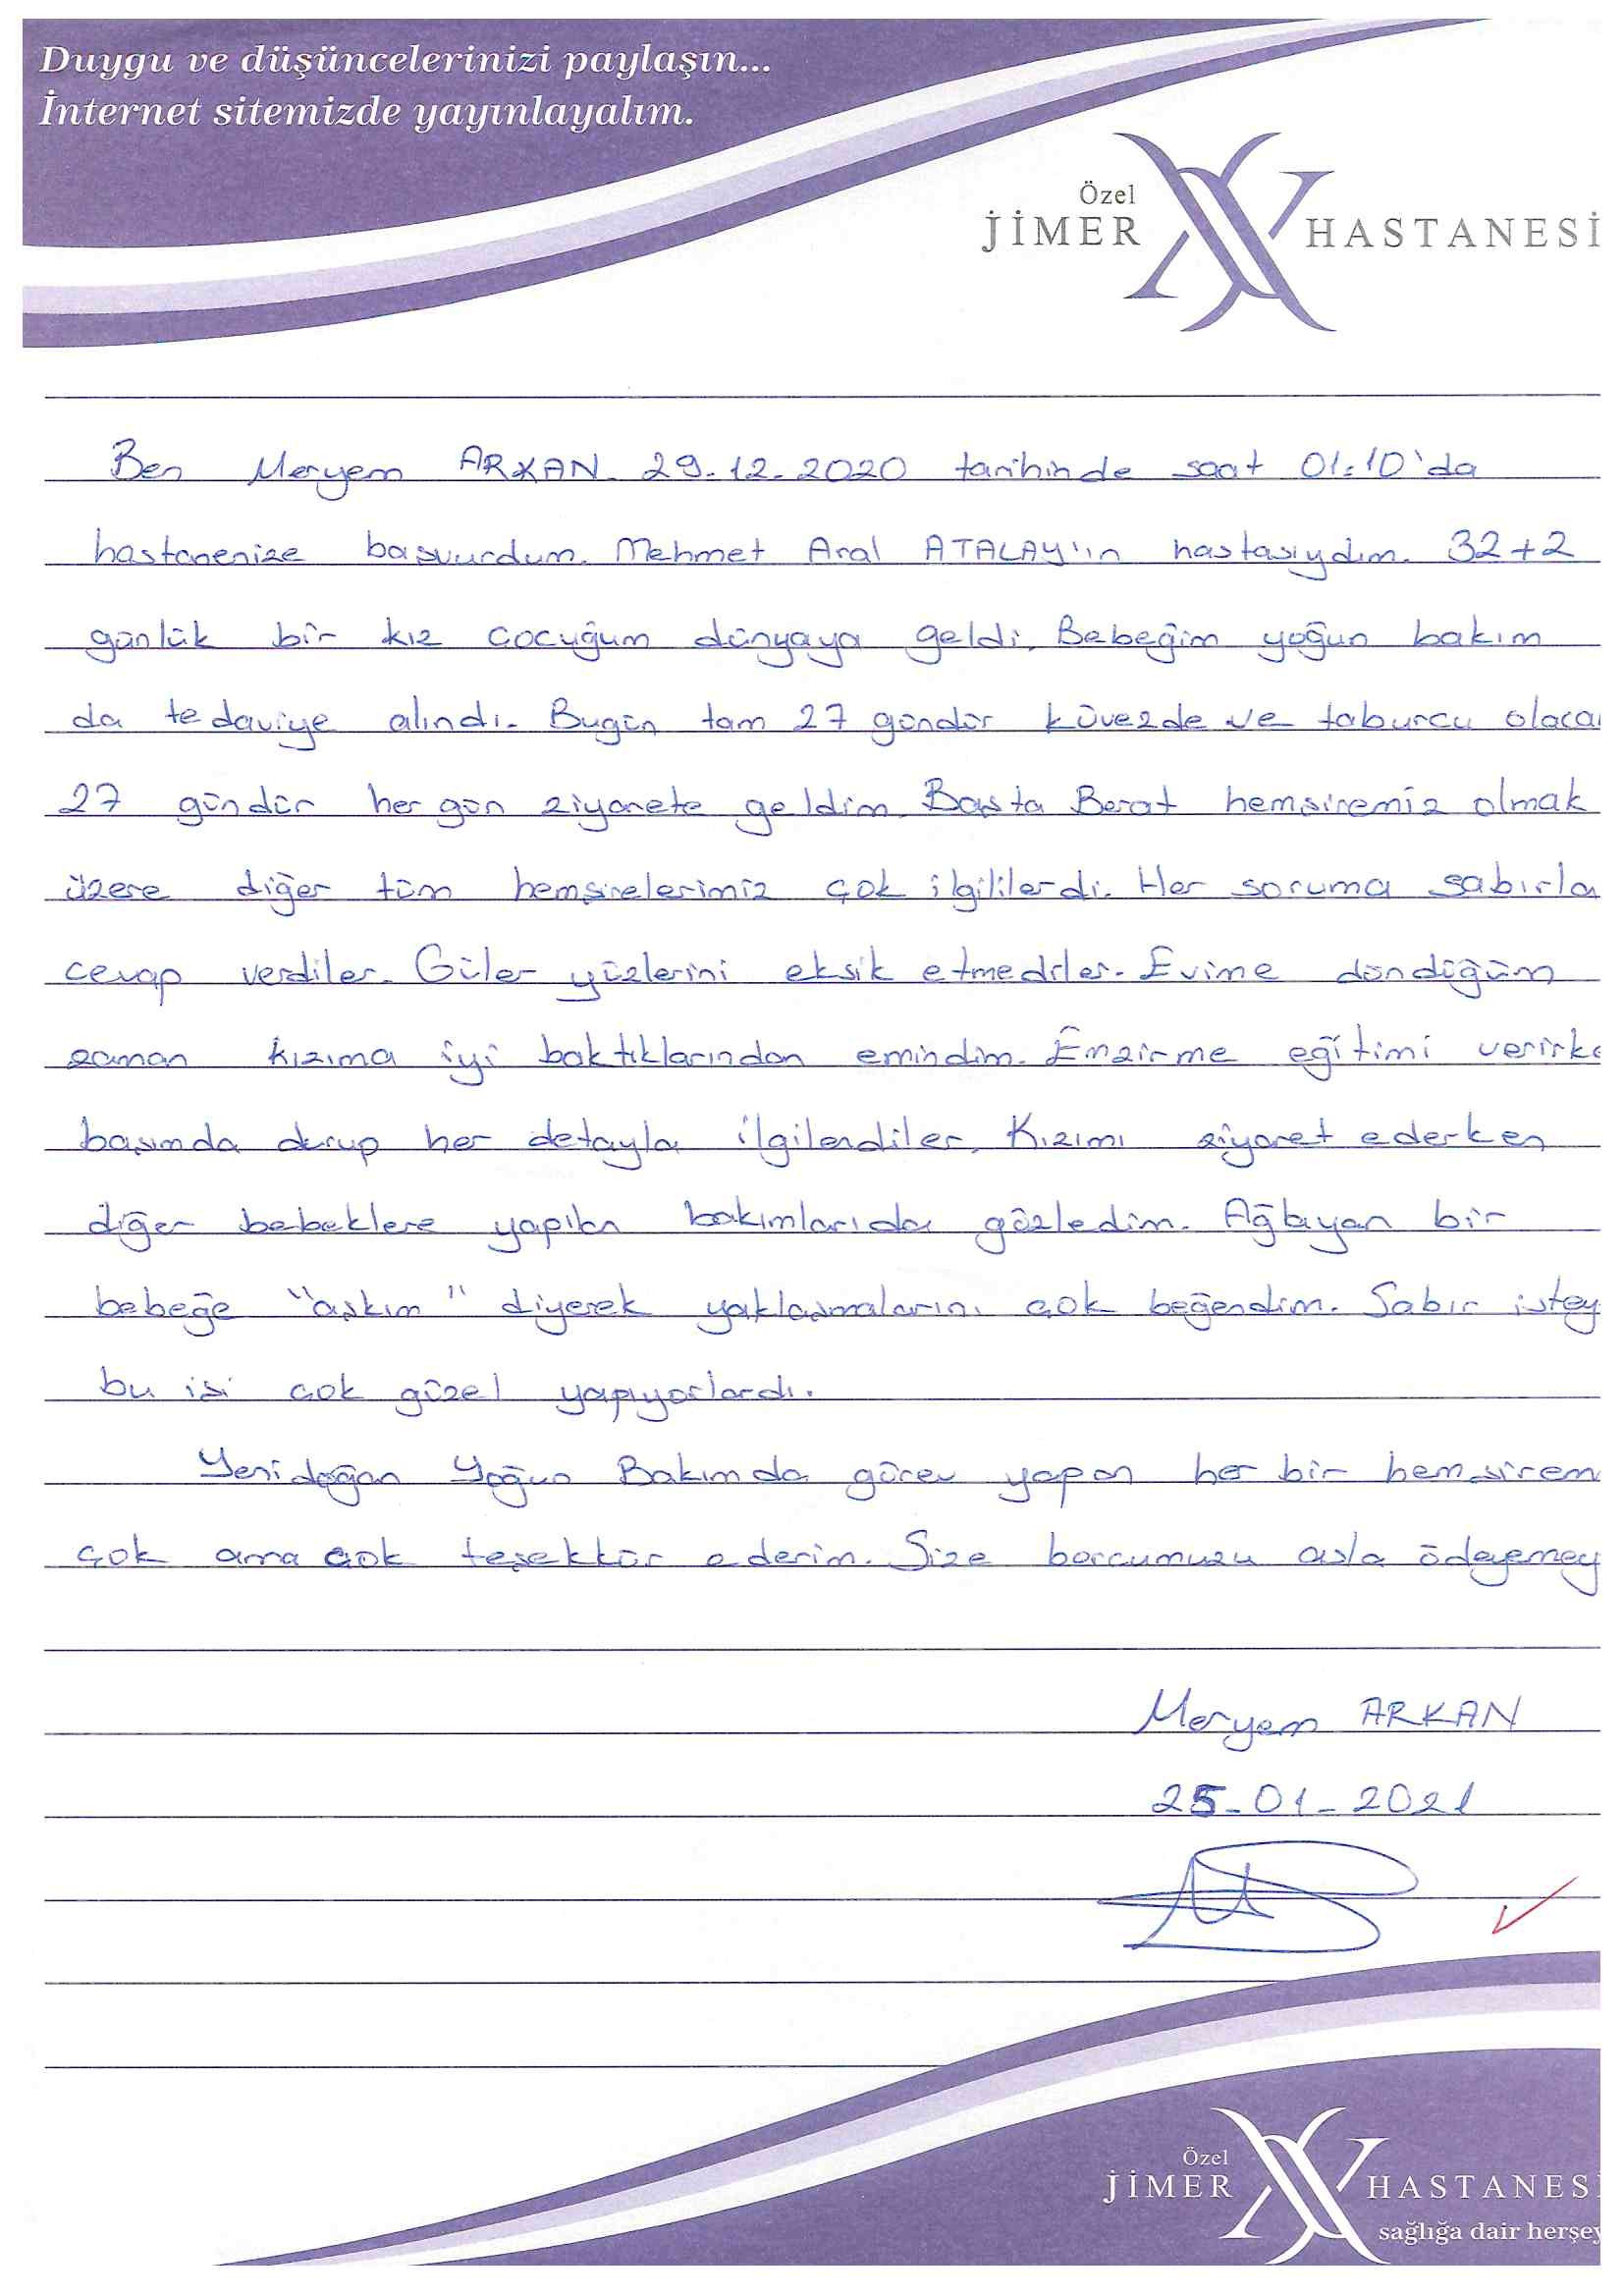 Duygu ve düşüncelerinizi paylaşın...
İnternet sitemizde yayınlayalım.
Özel
JİMER HASTANESİ
Ben Meryem ARKAN. 29.12.2020 tarihinde saat 01:10'da
hastanenize başvurdum. Mehmet Aral ATALAY'ın hastasıydım. 32+2
günlük bir kız çocuğum dünyaya geldi. Bebeğim yoğun bakım
da tedaviye alındı. Bugün tam 27 gündür küvezde ve taburcu olaca
27 gündür her gün ziyarete geldim. Başta Berat hemşiremiz olmak
üzere diğer tüm hemşirelerimiz çok ilgililerdi. Her soruma sabırla
cevap verdiler. Güler yüzlerini eksik etmediler. Evime döndüğüm
zaman kızıma iyi baktıklarından emindim. Emzirme eğitimi verirke
başımda durup her detayla ilgilendiler. Kızımı ziyaret ederken
diğer bebeklere yapılan bakımlarıda gözledim. Ağlayan bir
bebeğe "aşkım" diyerek yaklaşmalarını çok beğendim. Sabır istey
bu işi çok güzel yapıyorlardı.
Yenidoğan Yoğun Bakımda görev yapan her bir hemşirem
çok ama çok teşekkür ederim. Size borcumuzu asla ödeyemey
Meryem ARKAN
25-01-2021
Özel
JİMER HASTANES
sağlığa dair herşey